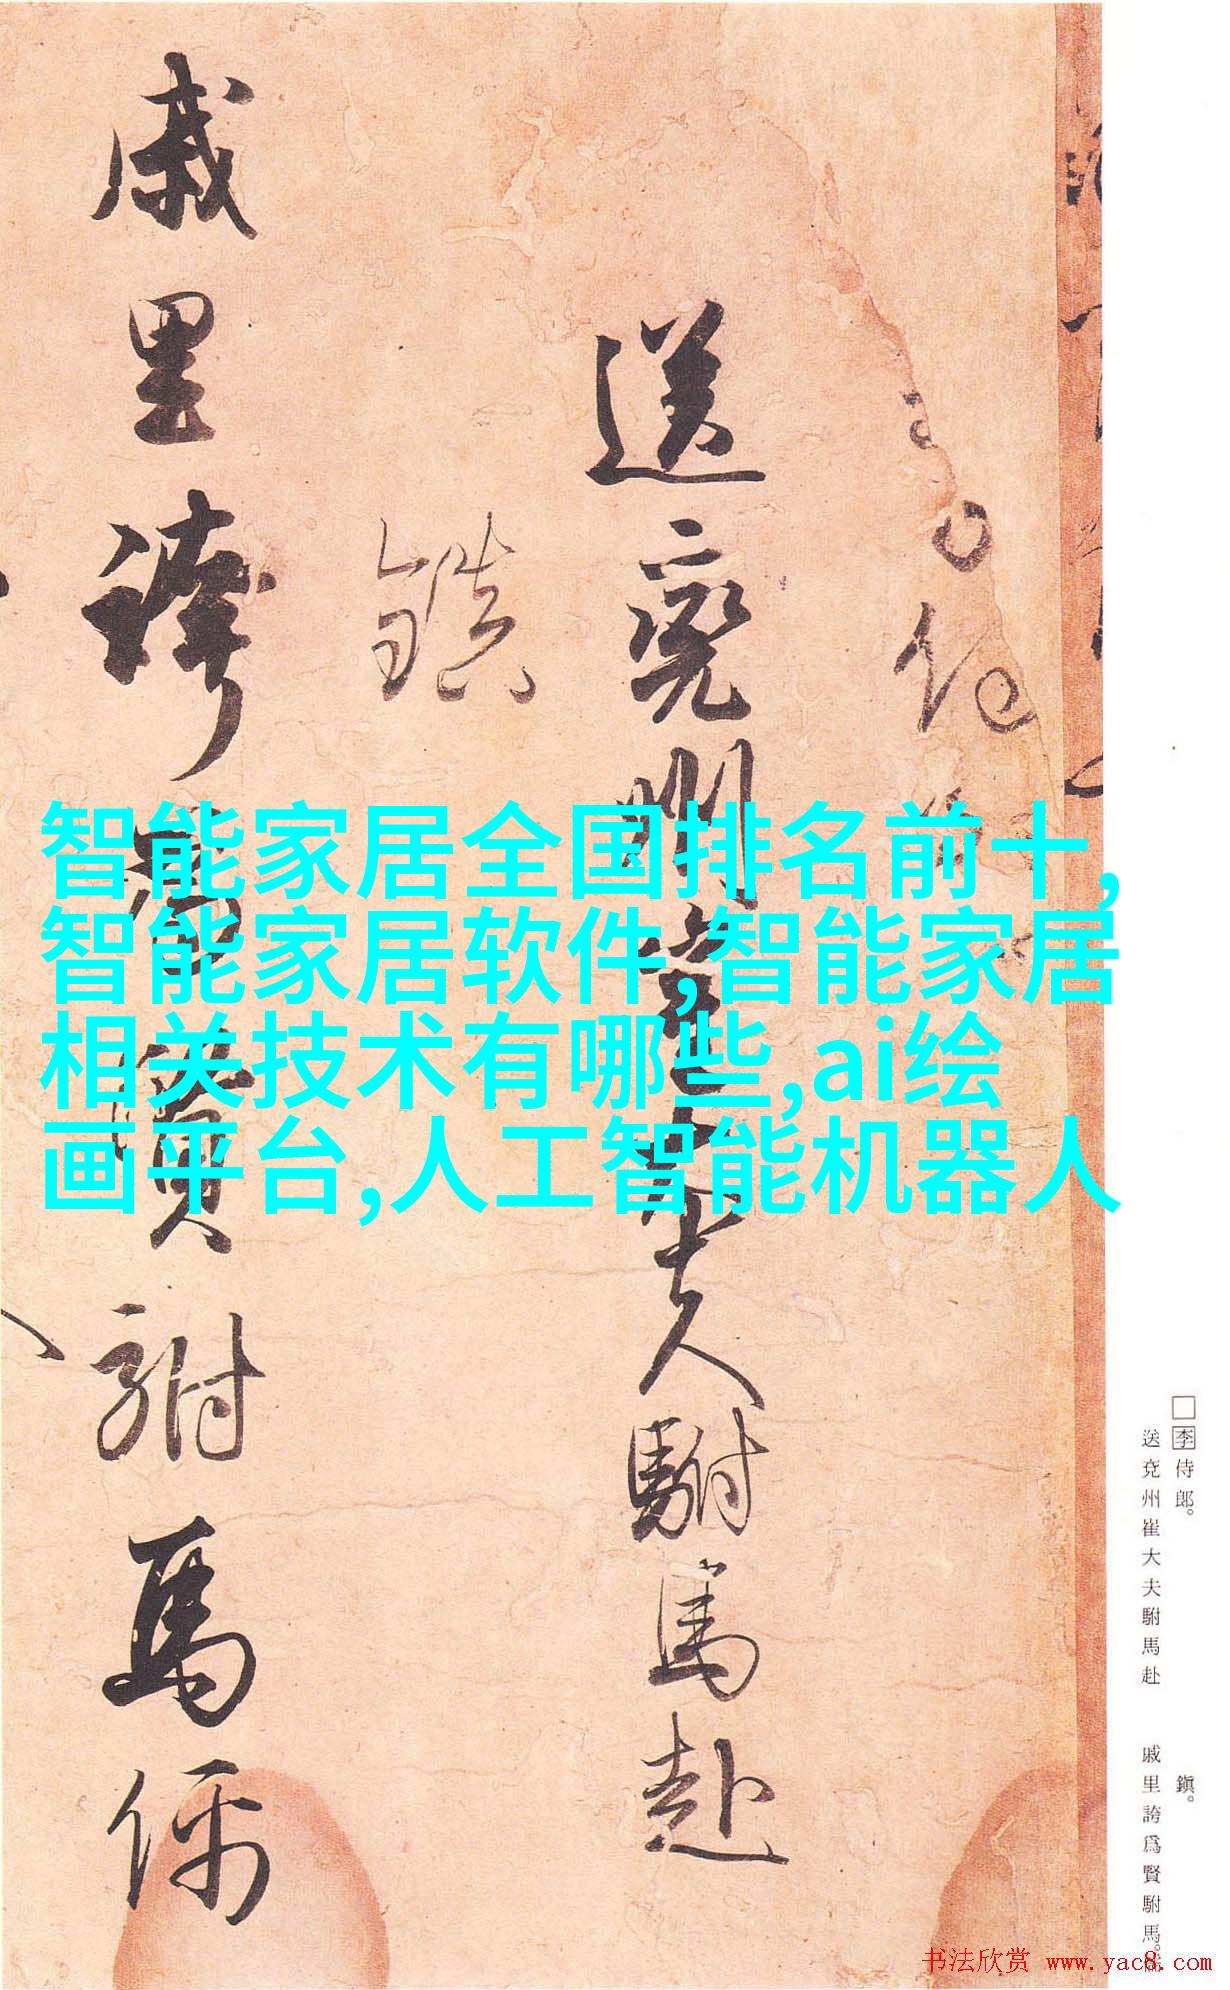 □李侍郎。
送兗州崔大夫駙馬赴
鎭。
戚里誇爲賢駙馬。
送兗州崔大夫駙馬赴
鎮
戚里誇為賢駙馬儒
智能家居全国排名前十,
智能家居软件,智能家居
相关技术有哪些,ai绘
画平台,人工智能机器人
书法欣赏 www.yac8.com